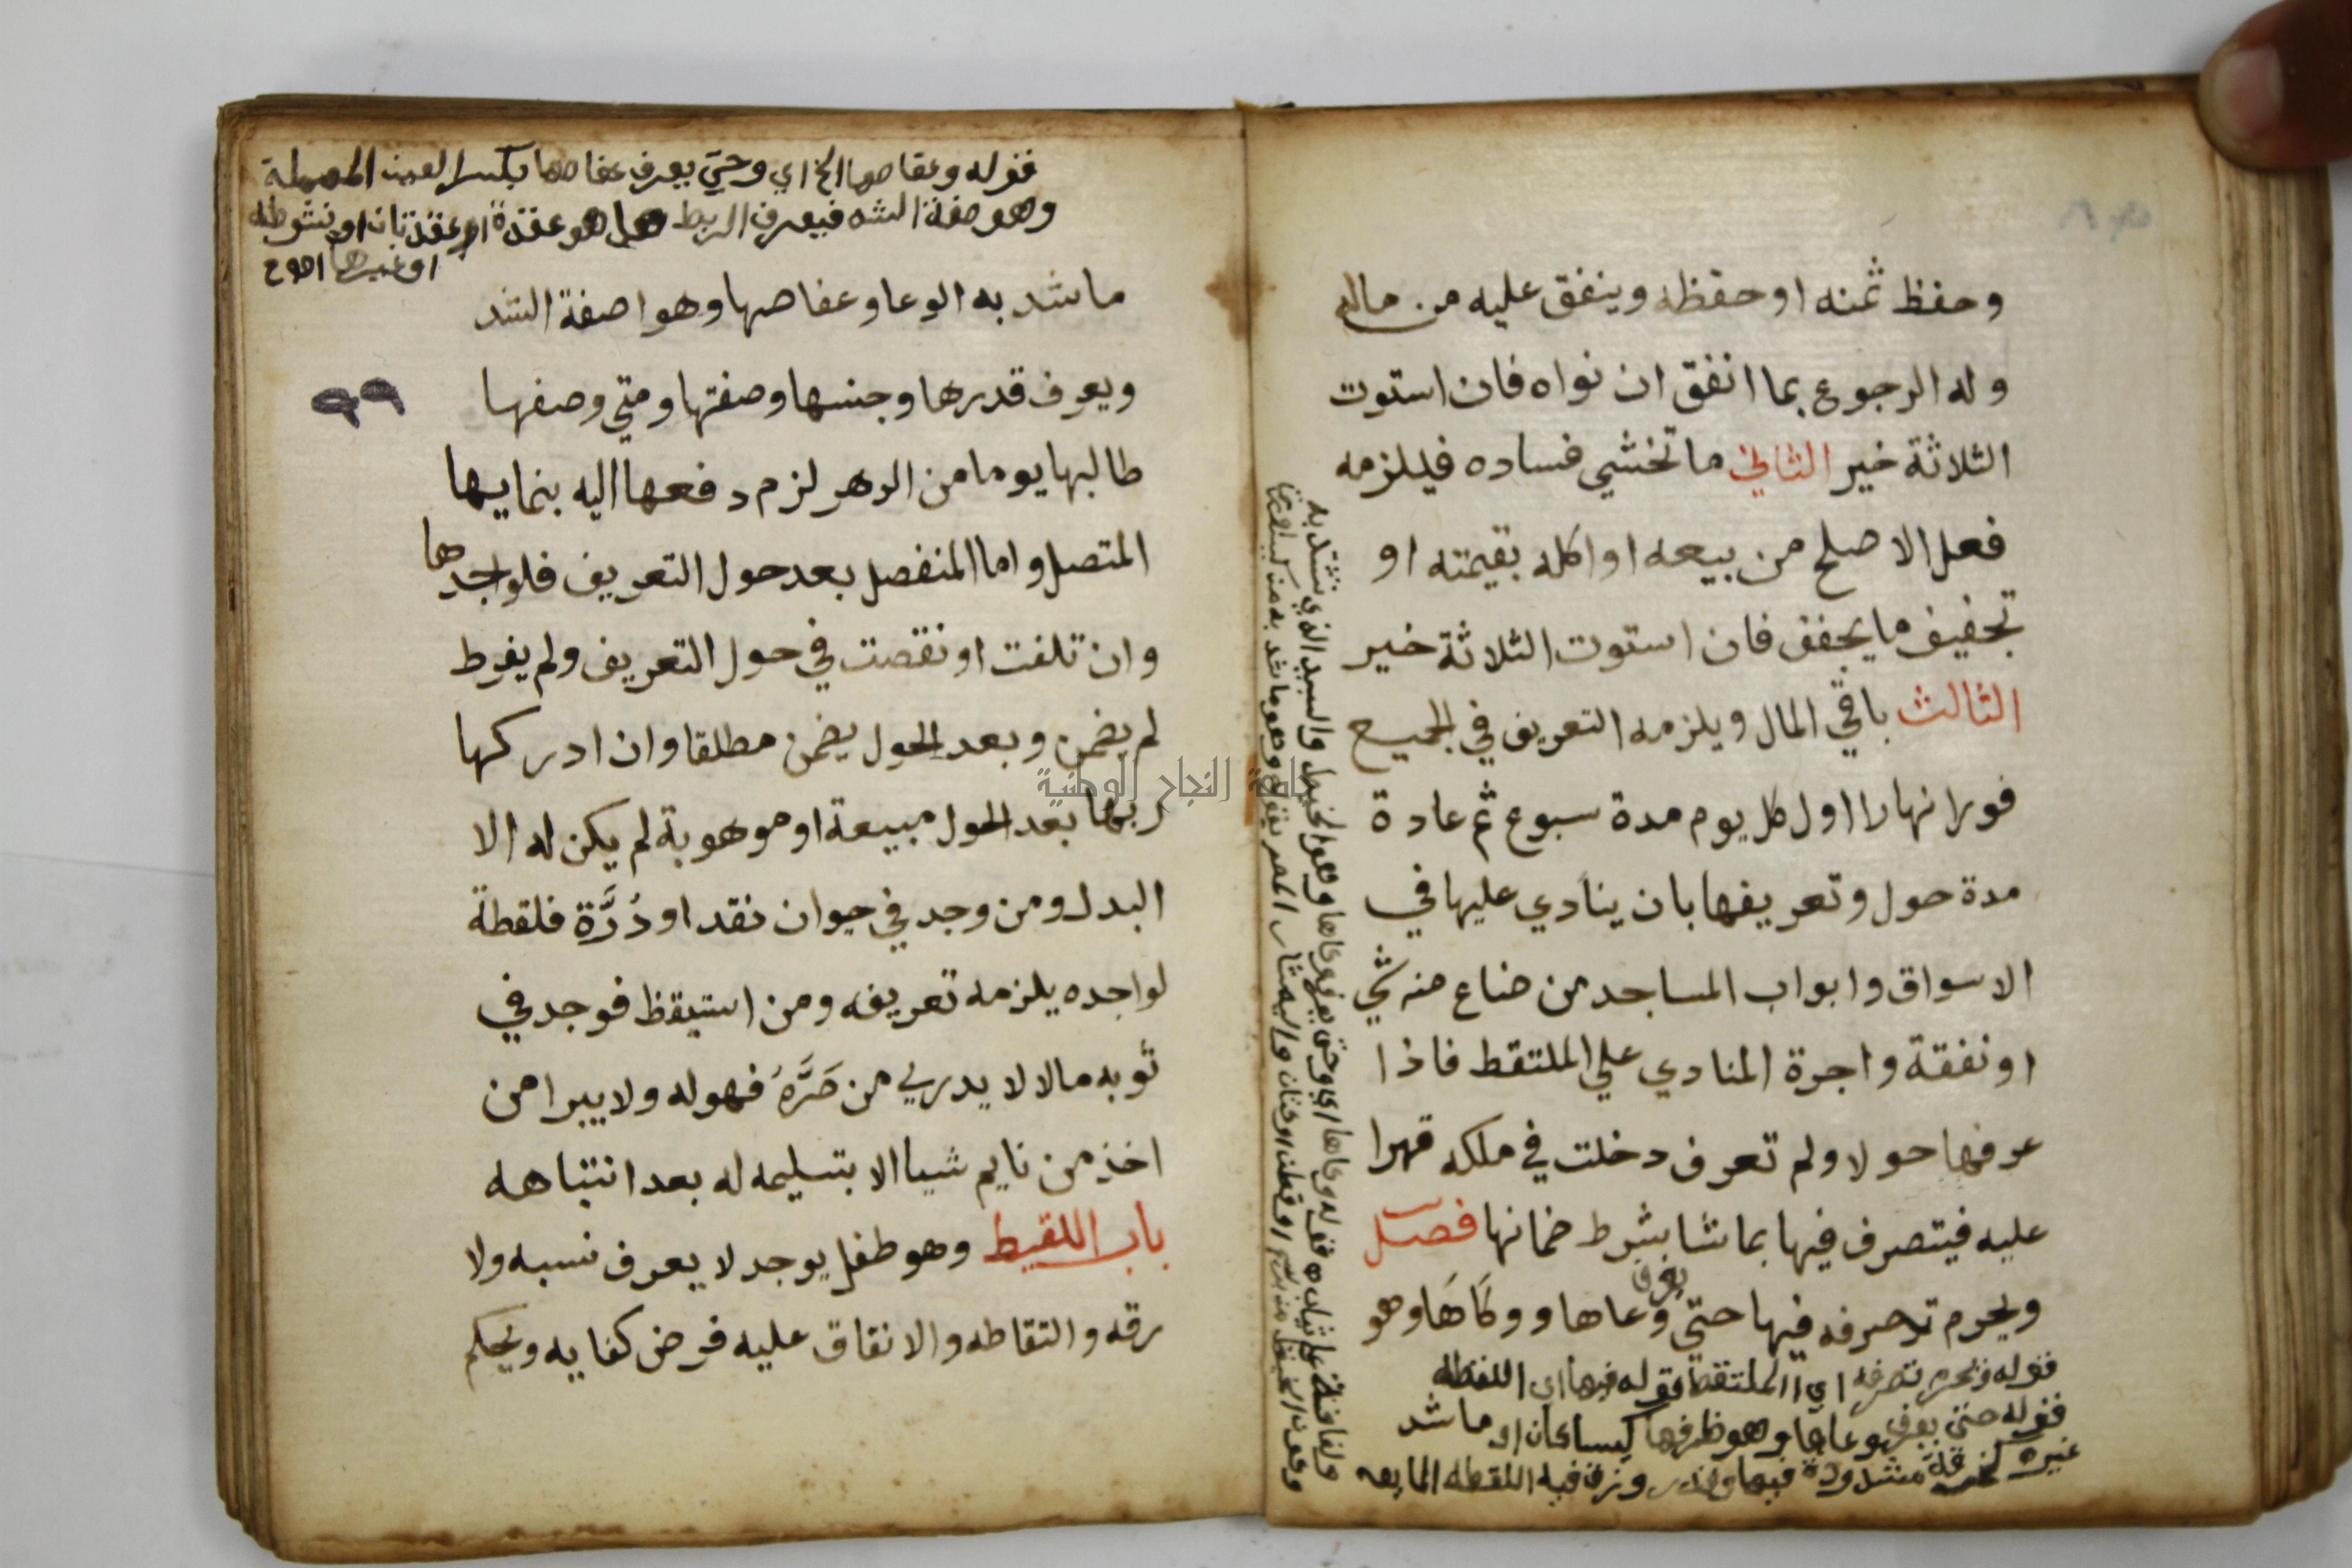 وحفظ ثمنه او حفظه وينفق عليه من ماله
وله الرجوع بما انفق ان نواه فان استوت
الثلاثة خير الثاني ما تخشي فساده فيلزمه
فعل الاصلح من بيعه او اكله بقيمته او
تجفيف ما يجفف فان استوت الثلاثة خير
الثالث باقي المال ويلزمه التعريف في الجميع
فورا نهارا اول كل يوم مدة سبوع ثم عادة
مدة حول وتعريفها بان ينادي عليها في
الاسواق وابواب المساجد من ضاع منه شي
او نفقة واجرة المنادي علي الملتقط فاذا
عرفها حولا ولم تعرف دخلت في ملكه قهرا
عليه فيتصرف فيها بما شا بشرط ضمانها فصل
ويحرم تصرفه فيها حتي يعرف وعاها ووكاها وهو
قوله ويحرم تصرفه اي الملتقط قوله فيها اي اللقطه
قوله حتى يعرف وعاها وهو ظرفها كيسا كان او ما شد
غيره كخرقة مشدودة فيها وقدر وزق فيه اللقطه المايعه
قوله وعقاصها الخ اي وحتي يعرف عفاصها بكسر العين المهملة
وهو صفة الشد فيعرف الربط هل هو عقدة او عقدتان او نشوطه
او غيرها
ما شد به الوعا وعفاصها وهو اصفة الشد
ويعرف قدرها وجنسها وصفتها ومتي وصفها
٩٩
طالبها يوما من الدهر لزم دفعها اليه بنمايها
المتصل واما المنفصل بعد حول التعريف فلواجدها
وان تلفت او نقصت في حول التعريف ولم يفرط
لم يضمن وبعد الحول يضمن مطلقا وان ادركها
ربها بعد الحول مبيعة او موهوبة لم يكن له الا
البدل ومن وجد في حيوان نقد او دُرَّة فلقطة
لواجده يلزمه تعريفه ومن استيقظ فوجد في
ثوبه مالا لا يدري من صَرَّهُ فهو له ولا يبرا من
اخذ من نايم شيا الا بتسليمه له بعد انتباهه
باب اللقيط وهو طفل يوجد لا يعرف نسبه ولا
رقه والتقاطه والانفاق عليه فرض كفايه ويحكم
جامعة النجاح الوطنية